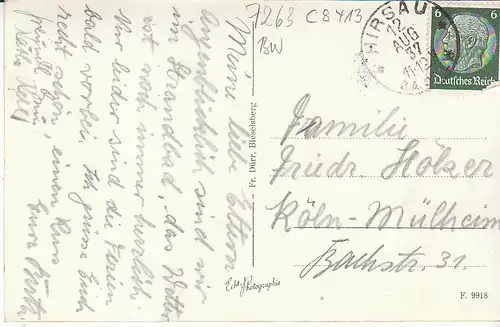 7263 C8413
BW
HIRSAU
12
AUG
37
11-12
6
Deutsches Reich
Meine liebe Eltern
augenblicklich sind wir
im Strandbad, das Wetter
ist noch immer herrlich.
Nur leider sind die Ferien
bald vorbei. Ich grüsse Euch
recht schön, einen Kuss
Eure
Fr. Dürr, Bieselsberg
Echte Photographie
Familie
Friedr. Hölzer
Köln-Mülheim
Bachstr. 31.
F. 9918